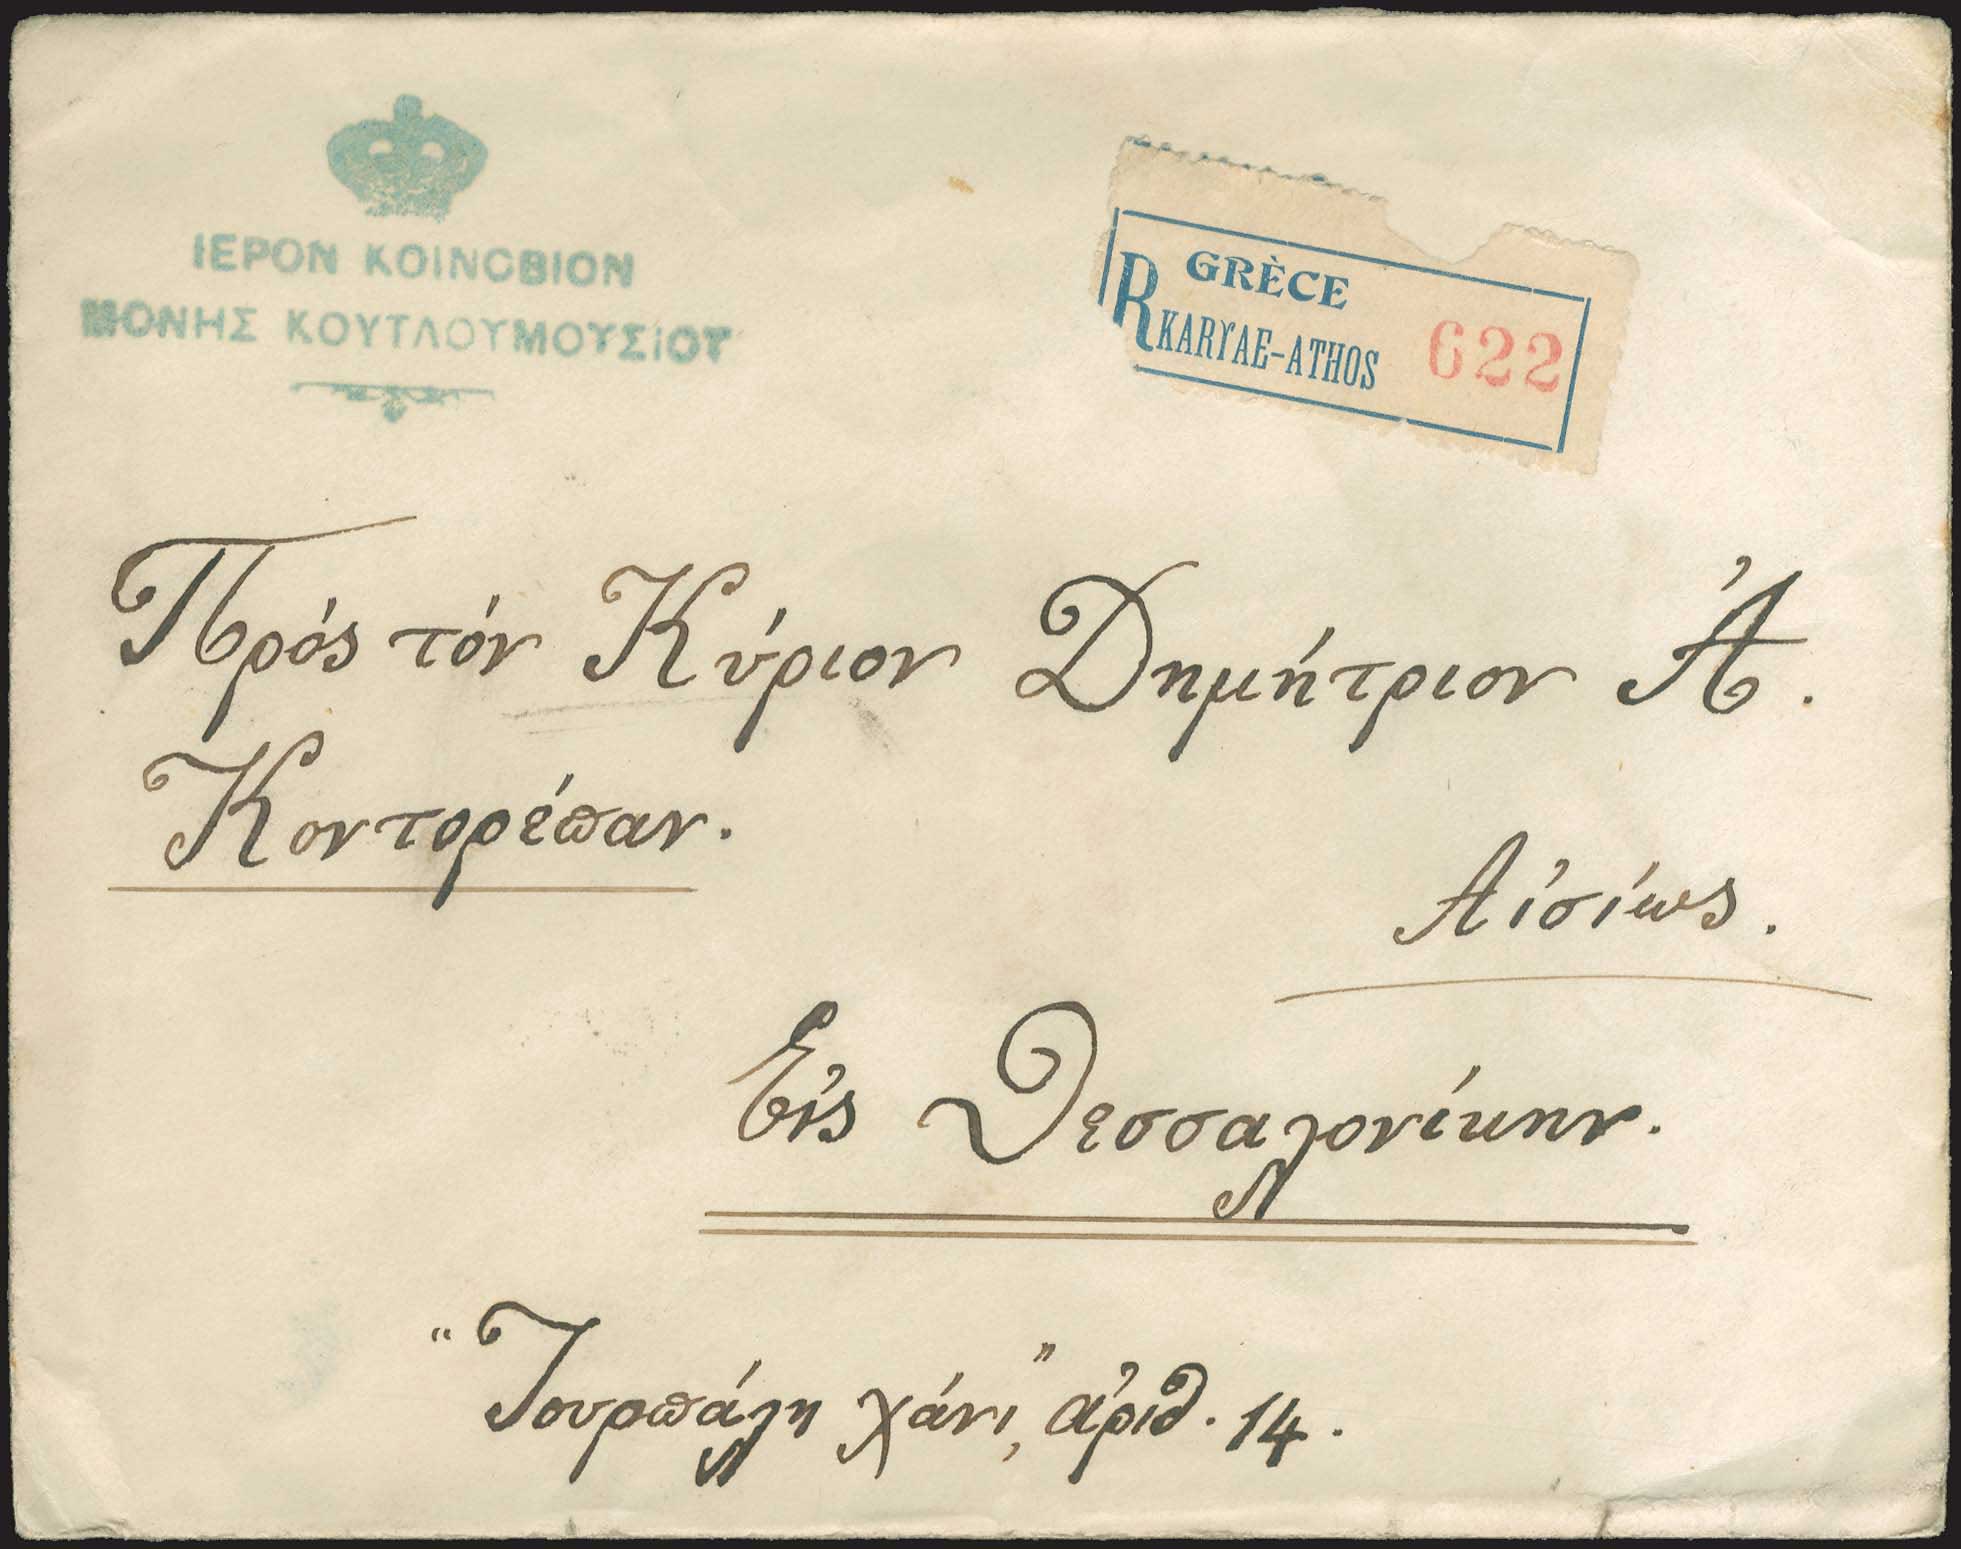 ΙΕΡΟΝ ΚΟΙΝΟΒΙΟΝ
ΜΟΝΗΣ ΚΟΥΤΛΟΥΜΟΥΣΙΟΥ
GRÈCE
R KARYAE-ATHOS 622
Πρός τόν Κύριον Δημήτριον Ἀ.
Κοντορέπαν.
Αἰσίως.
Εἰς Θεσσαλονίκην.
"Τουρπάλη χάνι," ἀριθ. 14.